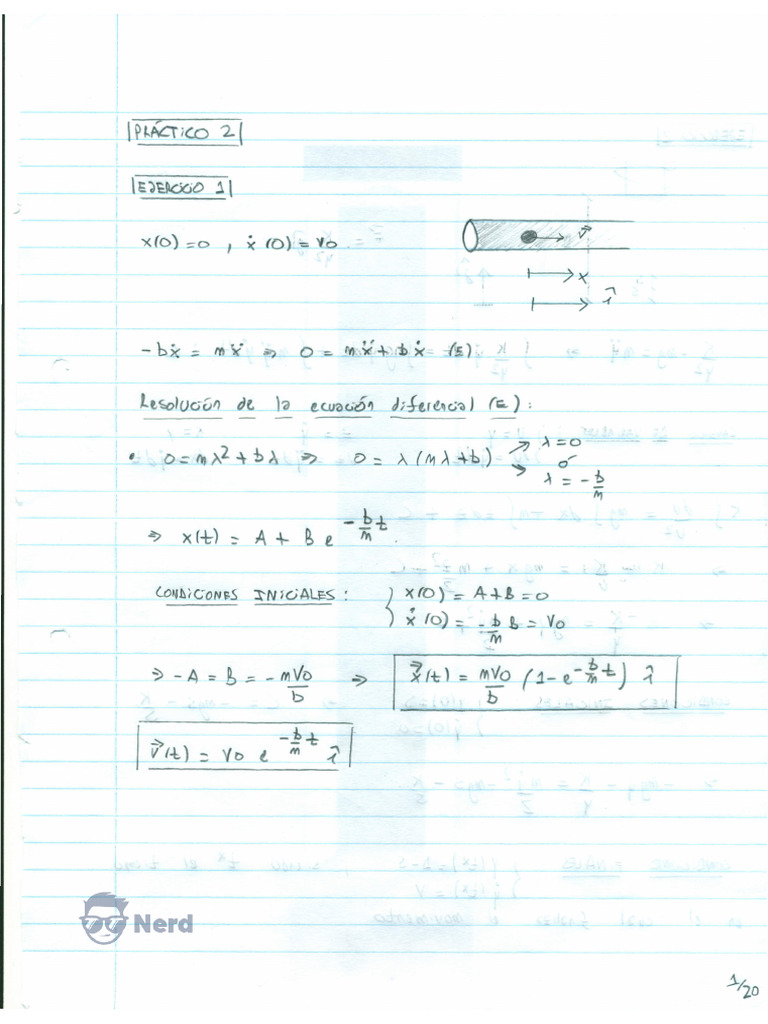 PRÁCTICO 2
EJERCICIO 1
x(0) = 0 , ẋ(0) = v0
v⃗
x
î
-bẋ = mẍ ⇒ 0 = mẍ + bẋ (E)
Resolución de la ecuación diferencial (E):
• 0 = mλ² + bλ ⇒ 0 = λ(mλ+b) λ = 0
ó
λ = -b/m
⇒ x(t) = A + B e^(-b/m t).
CONDICIONES INICIALES: { x(0) = A+B = 0
ẋ(0) = -b/m B = v0
⇒ -A = B = -mv0/b ⇒ x⃗(t) = mv0/b (1-e^(-b/m t)) î
v⃗(t) = v0 e^(-b/m t) î
Nerd
1/20